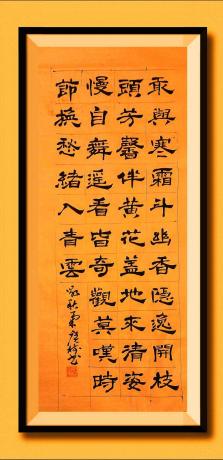 敢與寒霜斗幽香隱逸開枝
頭芳馨伴黃花蓋地來清姿
慢自舞遥看皆奇觀莫嘆時
節換愁緒入青雲